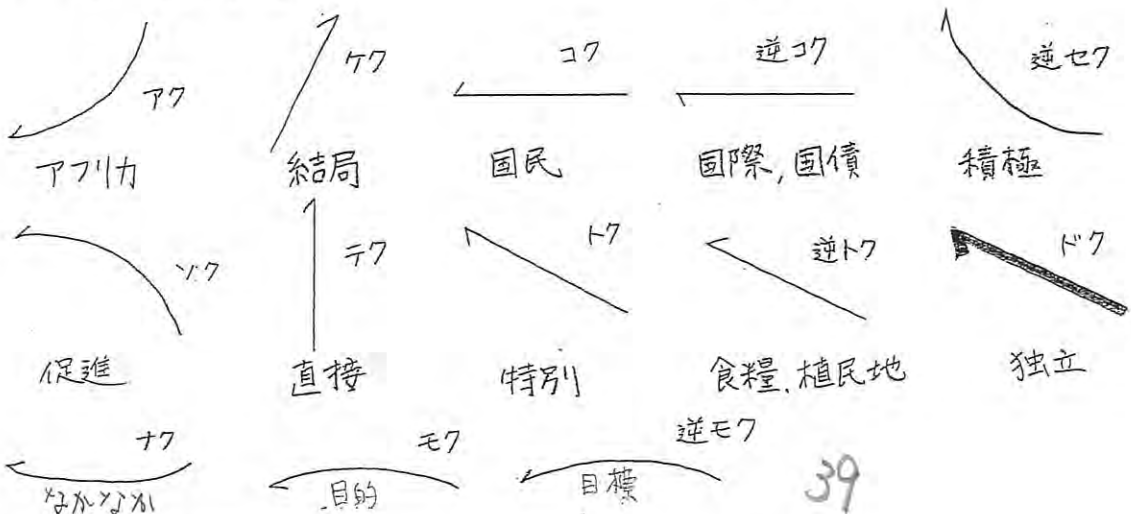 アク ケク コク 逆コク 逆セク
アフリカ 結局 国民 国際,国債 積極
ソク テク トク 逆トク ドク
促進 直接 特別 食糧,植民地 独立
ナク モク 逆モク
なかなか 目的 目標 39